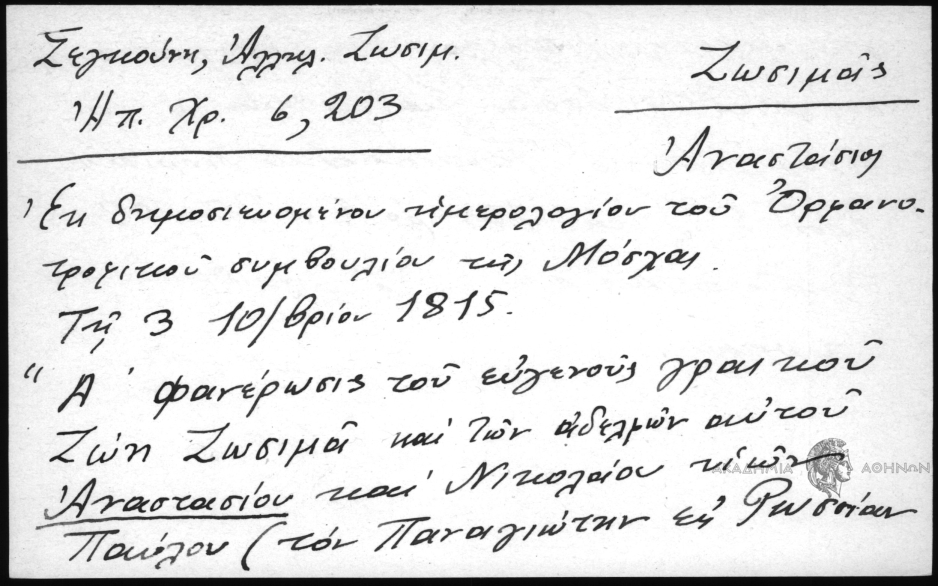 Σελκούνη, Ἀλληλ. Ζωσιμ.
Ἠπ. Χρ. 6, 203
Ζωσιμᾶς
Ἀναστάσιος
Ἐκ δημοσιευομένου ἡμερολογίου τοῦ Ὀρφανο-
τροφικοῦ συμβουλίου τῆς Μόσχας.
Τῇ 3 10/βρίου 1815.
"Α' φανέρωσις τοῦ εὐγενοῦς γραικοῦ
Ζώη Ζωσιμᾶ καὶ τῶν ἀδελφῶν αὐτοῦ
Ἀναστασίου καὶ Νικολάου
Παύλου (τὸν Παναγιώτην εἰς Ρωσσίαν
ΑΚΑΔΗΜΙΑ ΑΘΗΝΩΝ